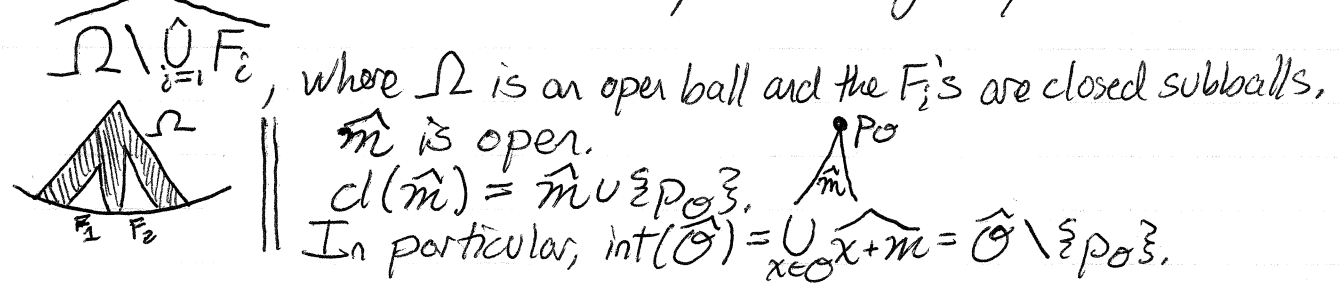 Ω \ ⋃̂_{i=1} F_i, where Ω is an open ball and the F_i's are closed subballs.
Ω
m̂ is open.
p_𝒪
cl(m̂) = m̂ ∪ {p_𝒪}.
m̂
F_1 F_2
In particular, int(𝒪̂) = ⋃_{x∈𝒪} \widehat{x+m} = 𝒪̂ \ {p_𝒪}.